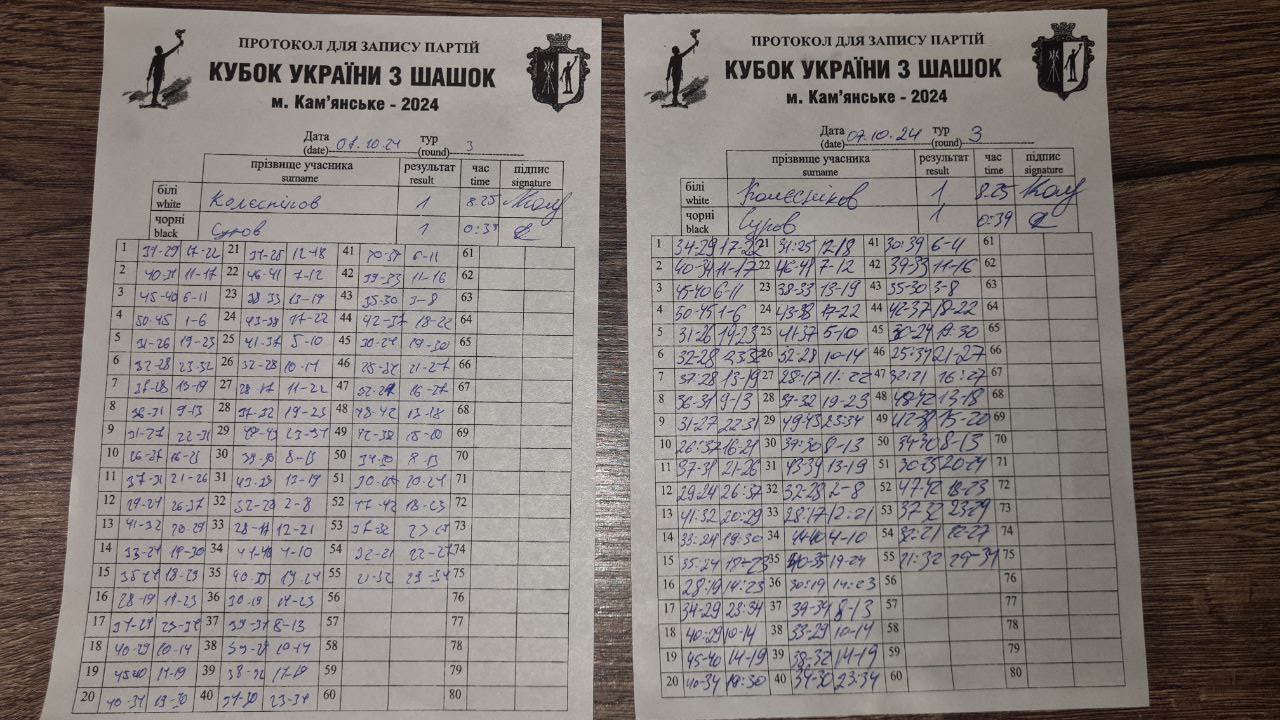 ПРОТОКОЛ ДЛЯ ЗАПИСУ ПАРТІЙ
КУБОК УКРАЇНИ З ШАШОК
м. Кам'янське - 2024
Дата (date) 07.10.24 тур (round) 3
прізвище учасника surname результат result час time підпис signature
білі white Колєсніков 1 8.25
чорні black Суров 1 0:39
1 34-29 17-22 21 31-25 12-18 41 30-39 6-11 61
2 40-34 11-17 22 46-41 7-12 42 39-33 11-16 62
3 45-40 6-11 23 38-33 13-19 43 35-30 3-8 63
4 50-45 1-6 24 43-38 17-22 44 42-37 18-22 64
5 31-26 19-23 25 41-37 5-10 45 30-24 19-30 65
6 32-28 23-32 26 32-28 10-14 46 25-34 21-27 66
7 37-28 13-19 27 28-17 11-22 47 32-21 16-27 67
8 36-31 9-13 28 37-32 19-23 48 48-42 13-18 68
9 31-27 22-31 29 49-43 23-34 49 42-38 15-20 69
10 26-37 16-21 30 39-30 8-13 50 34-30 8-13 70
11 37-31 21-26 31 43-39 13-19 51 30-25 20-24 71
12 29-24 26-37 32 32-28 2-8 52 47-42 18-23 72
13 41-32 20-29 33 28-17 12-21 53 37-32 23-29 73
14 33-24 19-30 34 44-40 4-10 54 32-21 22-27 74
15 35-24 18-23 35 40-35 19-24 55 21-32 29-34 75
16 28-19 14-23 36 30-19 14-23 56 76
17 34-29 23-34 37 39-34 8-13 57 77
18 40-29 10-14 38 33-29 10-14 58 78
19 45-40 14-19 39 38-32 14-19 59 79
20 40-34 19-30 40 34-30 23-34 60 80
ПРОТОКОЛ ДЛЯ ЗАПИСУ ПАРТІЙ
КУБОК УКРАЇНИ З ШАШОК
м. Кам'янське - 2024
Дата (date) 07.10.24 тур (round) 3
прізвище учасника surname результат result час time підпис signature
білі white Колєсніков 1 8.25
чорні black Суров 1 0:39
1 34-29 17-22 21 31:25 12-18 41 30:39 6-11 61
2 40-34 11-17 22 46-41 7-12 42 39-33 11-16 62
3 45-40 6-11 23 38-33 13-19 43 35-30 3-8 63
4 50-45 1-6 24 43-38 17-22 44 42-37 18-22 64
5 31-26 19-23 25 41-37 5-10 45 30-24 19:30 65
6 32-28 23:32 26 32-28 10-14 46 25:34 21-27 66
7 37:28 13-19 27 28:17 11:22 47 32:21 16:27 67
8 36-31 9-13 28 37-32 19-23 48 48-42 13-18 68
9 31-27 22:31 29 49-43 23:34 49 42-38 15-20 69
10 26:37 16-21 30 39:30 8-13 50 34-30 8-13 70
11 37-31 21-26 31 43-39 13-19 51 30-25 20-24 71
12 29-24 26:37 32 32-28 2-8 52 47-42 18-23 72
13 41:32 20:29 33 28:17 12:21 53 37-32 23-29 73
14 33:24 19:30 34 44-40 4-10 54 32:21 22-27 74
15 35:24 18-23 35 40-35 19-24 55 21:32 29-34 75
16 28:19 14:23 36 30:19 14:23 56 76
17 34-29 23:34 37 39-34 8-13 57 77
18 40:29 10-14 38 33-29 10-14 58 78
19 45-40 14-19 39 38-32 14-19 59 79
20 40-34 19:30 40 34-30 23:34 60 80